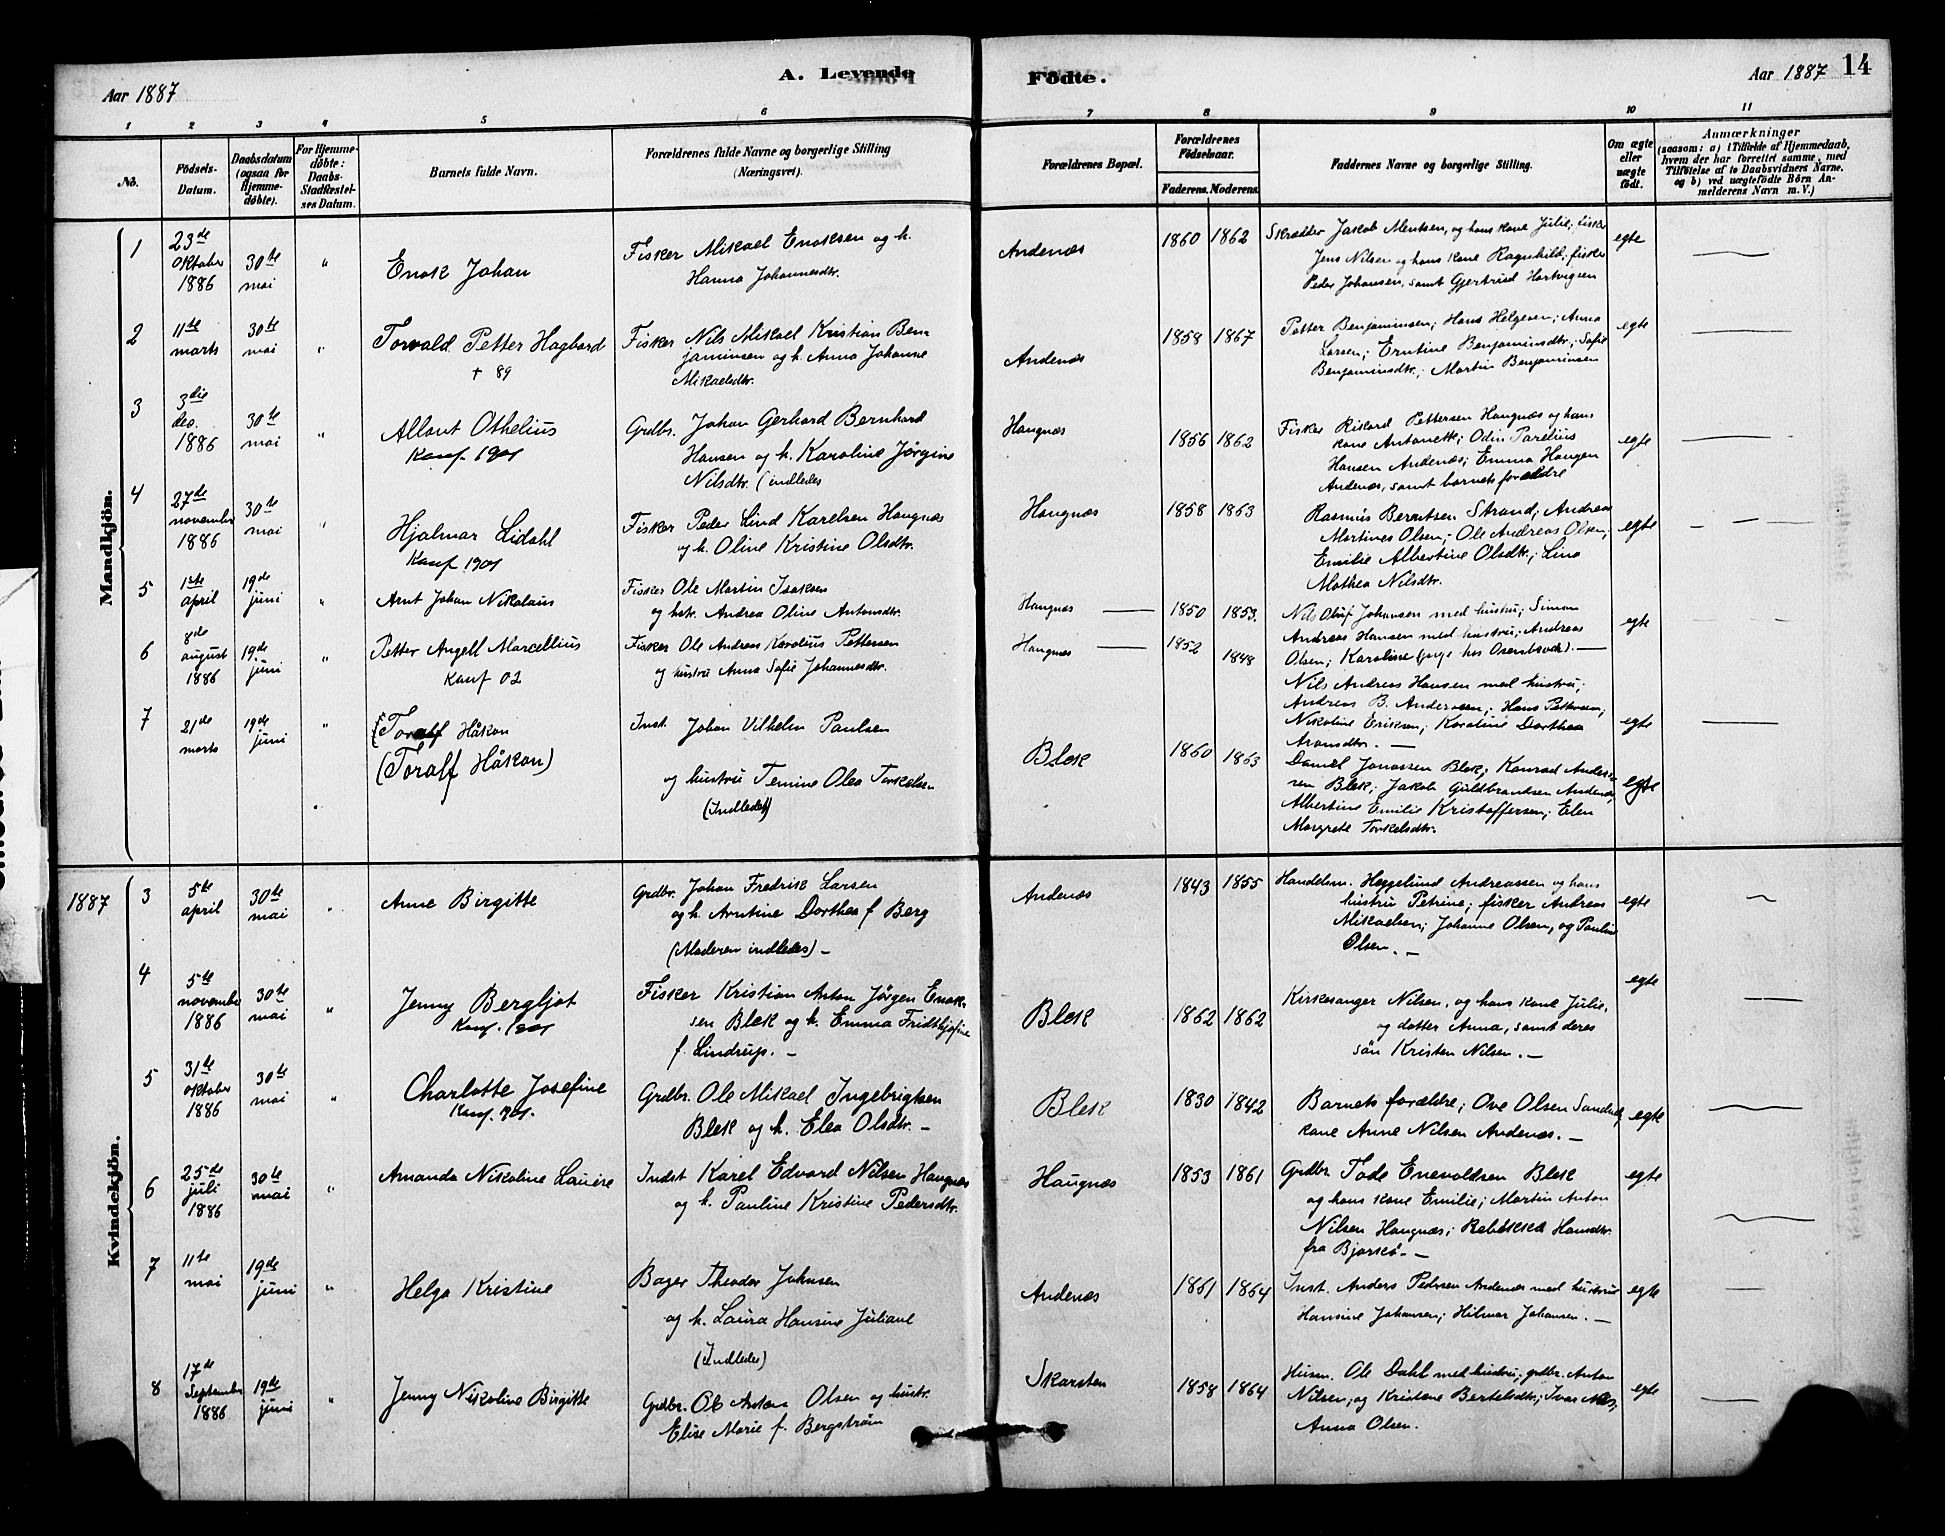 A. Levende Födte.
14
Aar 1887
Aar 1887
1 2 3 4 5 6 7 8 9 10 11
No.
Födsels-
Datum.
Daabsdatum
(ogsaa for
Hjemme-
döbte).
For Hjemme-
döbte:
Daabs-
Stadfæstel-
ses Datum.
Barnets fulde Navn.
Forældrenes fulde Navne og borgerlige Stilling
(Næringsvei).
Forældrenes Bopæl.
Forældrenes
Födselsaar.
Faderens. Moderens.
Faddernes Navne og borgerlige Stilling.
Om ægte
eller
uægte
födt.
Anmærkninger
(saasom: a) i Tilfælde af Hjemmedaab,
hvem der har forrettet samme, med
Tilföielse af to Daabsvidners Navne,
og b) ved uægtefödte Börn An-
melderens Navn m. V.)
Mandkjön.
1
23de
oktober
1886
30te
mai
"
Enok Johan
Fisker Mikael Enoksen og h.
Hanna Johannesdtr.
Andenæs
1860 1862
Skrædder Jakob Mentsen, og hans kone Julie; fisker
Jens Nilsen og hans kone Ragnhild; fisker
Peder Johansen, samt Gjertrud Hartvigsen
egte
2
11te
marts
30te
mai
"
Torvald Petter Hagbard
+ 89
Fisker Nils Mikael Kristian Ben-
jaminsen og h. Anna Johanne
Mikaelsdtr.
Andenæs
1858 1867
Petter Benjaminsen; Hans Helgesen; Anna
Larsen; Erntine Benjaminsdtr.; Sofie
Benjaminsdtr.; Martin Benjaminsen
egte
3
3die
dec.
1886
30te
mai
"
Allout Othelius
Konf. 1901
Grdbr. Johan Gerhard Bernhard
Hansen og h. Karoline Jørgine
Nilsdtr. (indledes
Haugnæs
1856 1862
Fisker Rikard Pettersen Haugnæs og hans
kone Antonette; Odin Parelius
Hansen Andenæs; Emma Haugen
Andenæs, samt barnets forældre
egte
4
27de
november
1886
30te
mai
"
Hjalmar Lidahl
Konf 1901
Fisker Peder Lind Karelsen Haugnæs
og h. Oline Kristine Olsdtr.
Haugnæs
1858 1863
Rasmus Berntsen Strand; Andreas
Martines Olsen; Ole Andreas Olsen;
Emilie Albertine Olsdtr.; Lina
Mathea Nilsdtr.
egte
5
1ste
april
19de
juni
"
Arnt Johan Nikolaus
Fisker Ole Martin Isaksen
og hstr. Andrea Oline Antonsdtr.
Haugnæs
1850 1853.
Nils Oluf Johansen med hustru; Simon
Andreas Hansen med hustru; Andreas
Olsen; Karoline
egte
6
8de
august
1886
19de
juni
"
Petter Angell Marcellius
Konf 02
Fisker Ole Andreas Karolius Pettersen
og hustru Anna Sofie Johannesdtr.
Haugnæs
1852 1848
Nils Andreas Hansen med hustru;
Andreas B. Andersen; Hans Pettersen;
Nikoline Eriksen; Karoline Dorthea
Aronsdtr.
egte
7
21de
marts
19de
juni
"
(Toralf Håkon
(Toralf Håkon)
Inst. Johan Vilhelm Paulsen
og hustru Temine Olea Torkelsen
(Indledet)
Blek
1860 1863
Daniel Jonassen Blek; Konrad Ander-
sen Blek; Jakob Guldbrandsen Andenæs;
Albertine Emilie Kristoffersen; Elen
Margrete Torkelsdtr.
egte
1887
Kvindekjön.
3
5te
april
30te
mai
Anne Birgitte
Grdbr. Johan Fredrik Larsen
og h. Arntine Dorthea f Berg
(Moderen indledes)
Andenæs
1843 1855
Handelsm. Heggelund Andreassen og hans
hustru Petrine; fisker Andreas
Mikaelsen; Johanne Olsen, og Pauline
Olsen.
egte
4
5te
november
1886
30te
mai
"
Jenny Bergljot
Konf. 1901
Fisker Kristian Anton Jörgen Enok-
sen Blek og h. Emma Fridthjofine
f. Lindrup.
Blek
1862 1862
Kirkesanger Nilsen, og hans kone Julie,
og datter Anna, samt deres
sön Kristen Nilsen.
egte
5
31te
oktober
1886
30te
mai
"
Charlotte Josefine
Konf. 901.
Grdbr. Ole Mikael Ingebrigtsen
Blek og h. Elea Olsdtr.
Blek
1830 1842
Barnets forældre; Ove Olsen
kone Anne Nilsen Andenæs.
egte
6
25de
juli
1886
30te
mai
"
Amanda Nikoline Lauere
Indst Karel Edvard Nilsen Haugnæs
og h. Pauline Kristine Pedersdtr.
Haugnæs
1853 1861
Grdbr Tode Enevoldsen Blek
og hans kone Emilie; Martin Anton
Nilsen Haugnæs; Rebekka Hansdtr.
fra Bjarkö.
egte
7
11te
mai
19de
juni
"
Helga Kristine
Bager Theodor Johnsen
og h. Laura Hansine Juliane
(Indledes)
Andenæs
1861 1864
Inst. Anders Pedersen Andenæs med hustru
Hansine Johansen; Hilmar Johansen.
egte
8
17de
September
1886
19de
juni
"
Jenny Nikoline Birgitte
Grdbr. Ole Anton Olsen og hustr.
Elise Marie f. Bergström
Skarsten
1858 1864
Husm. Ole Dahl med hustru; grdbr. Anton
Nilsen; og Kristene Bertelsdtr; Ivar
Anna Olsen.
egte